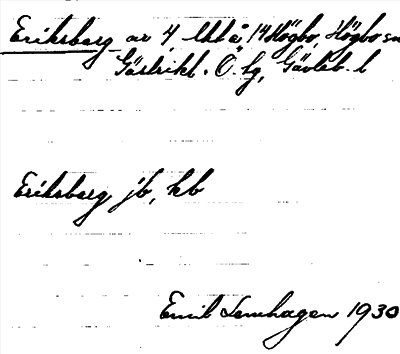 Eriksberg av 4 Utt å, 14 Högbo, Högbo sn
Gästrikl. Ö. hg, Gävleb. l
Eriksberg jb, kb
Emil Lernhagen 1930